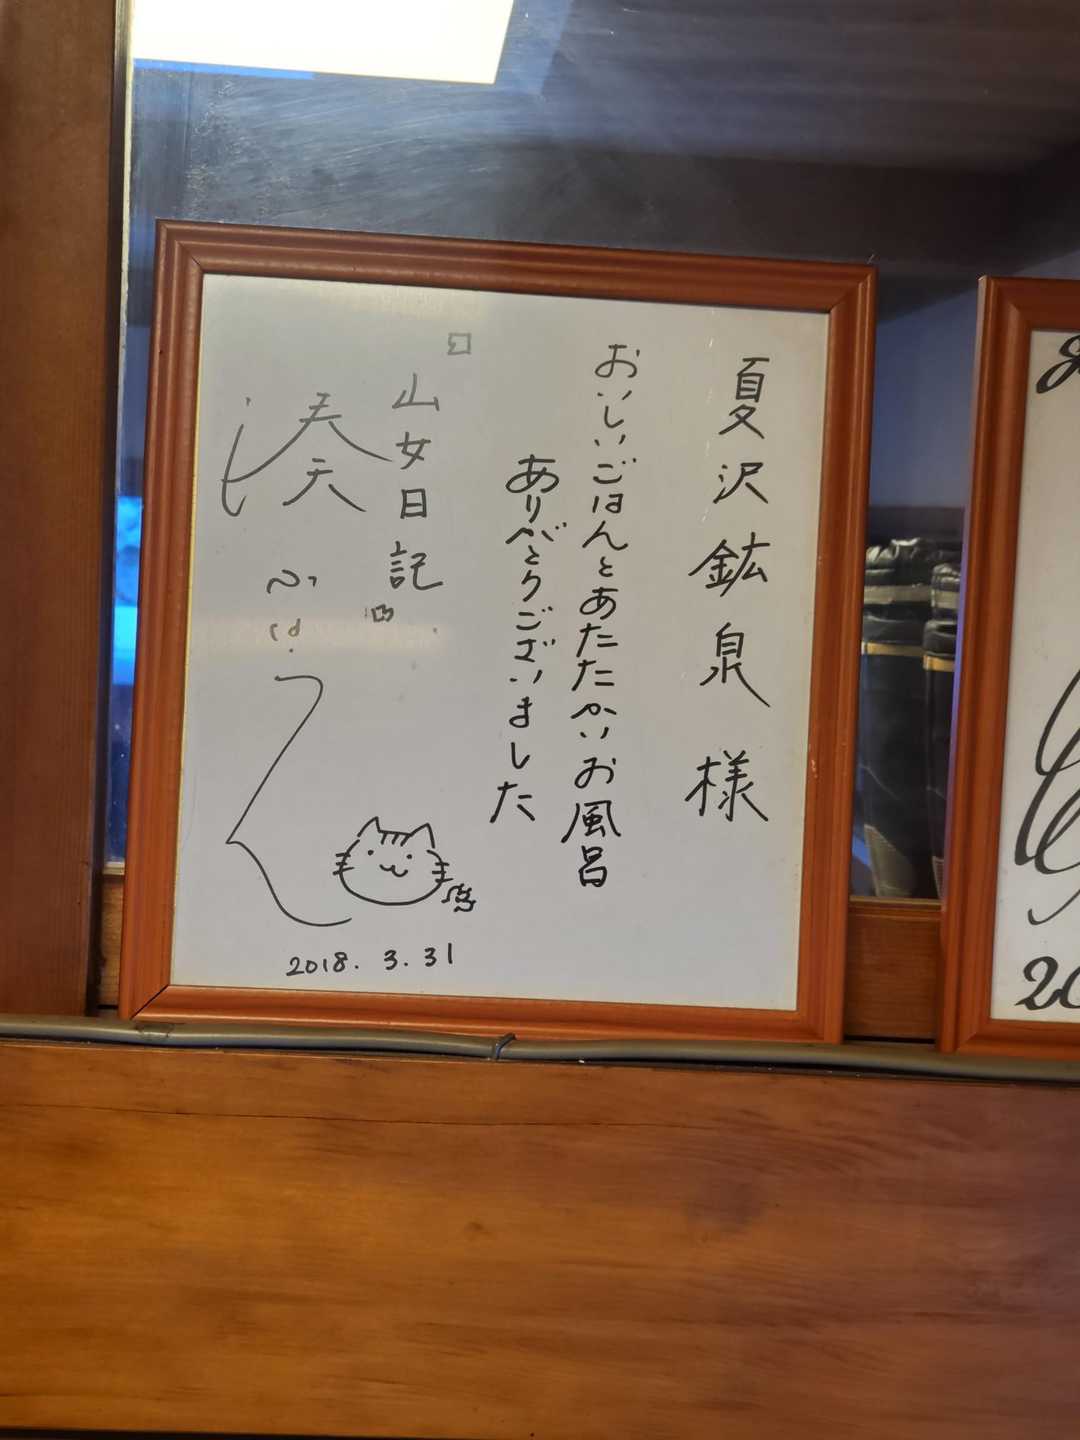 夏沢鉱泉様
おいしいごはんとあたたかいお風呂
ありがとうございました
「山女日記」
湊
2018. 3. 31
20